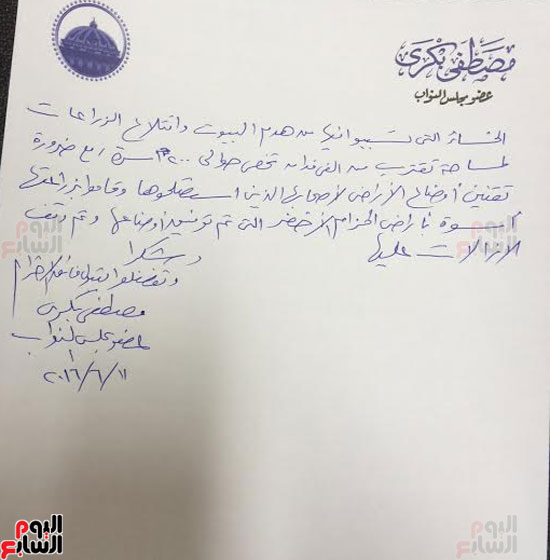 مصطفى بكرى
عضو مجلس النواب
الخسائر التى تسببوا فيها من هدم البيوت واقتلاع الزراعات
لمساحة تقترب من الفى فدان تخص حوالى ٢٠٠ أسرة مع ضرورة
تقنين أوضاع الأراضى لأصحابها الذين استصلحوها وقاموا بزراعتها
أسوة بأراضى الحزام الأخضر التى تم توفيق أوضاعها وتم وقف
الإزالات عليها
وشكرا
وتفضلوا بقبول فائق الاحترام
مصطفى بكرى
عضو مجلس النواب
٢٠١٦/٦/١١
اليوم السابع
اليوم السابع
اليوم السابع
اليوم السابع
اليوم السابع